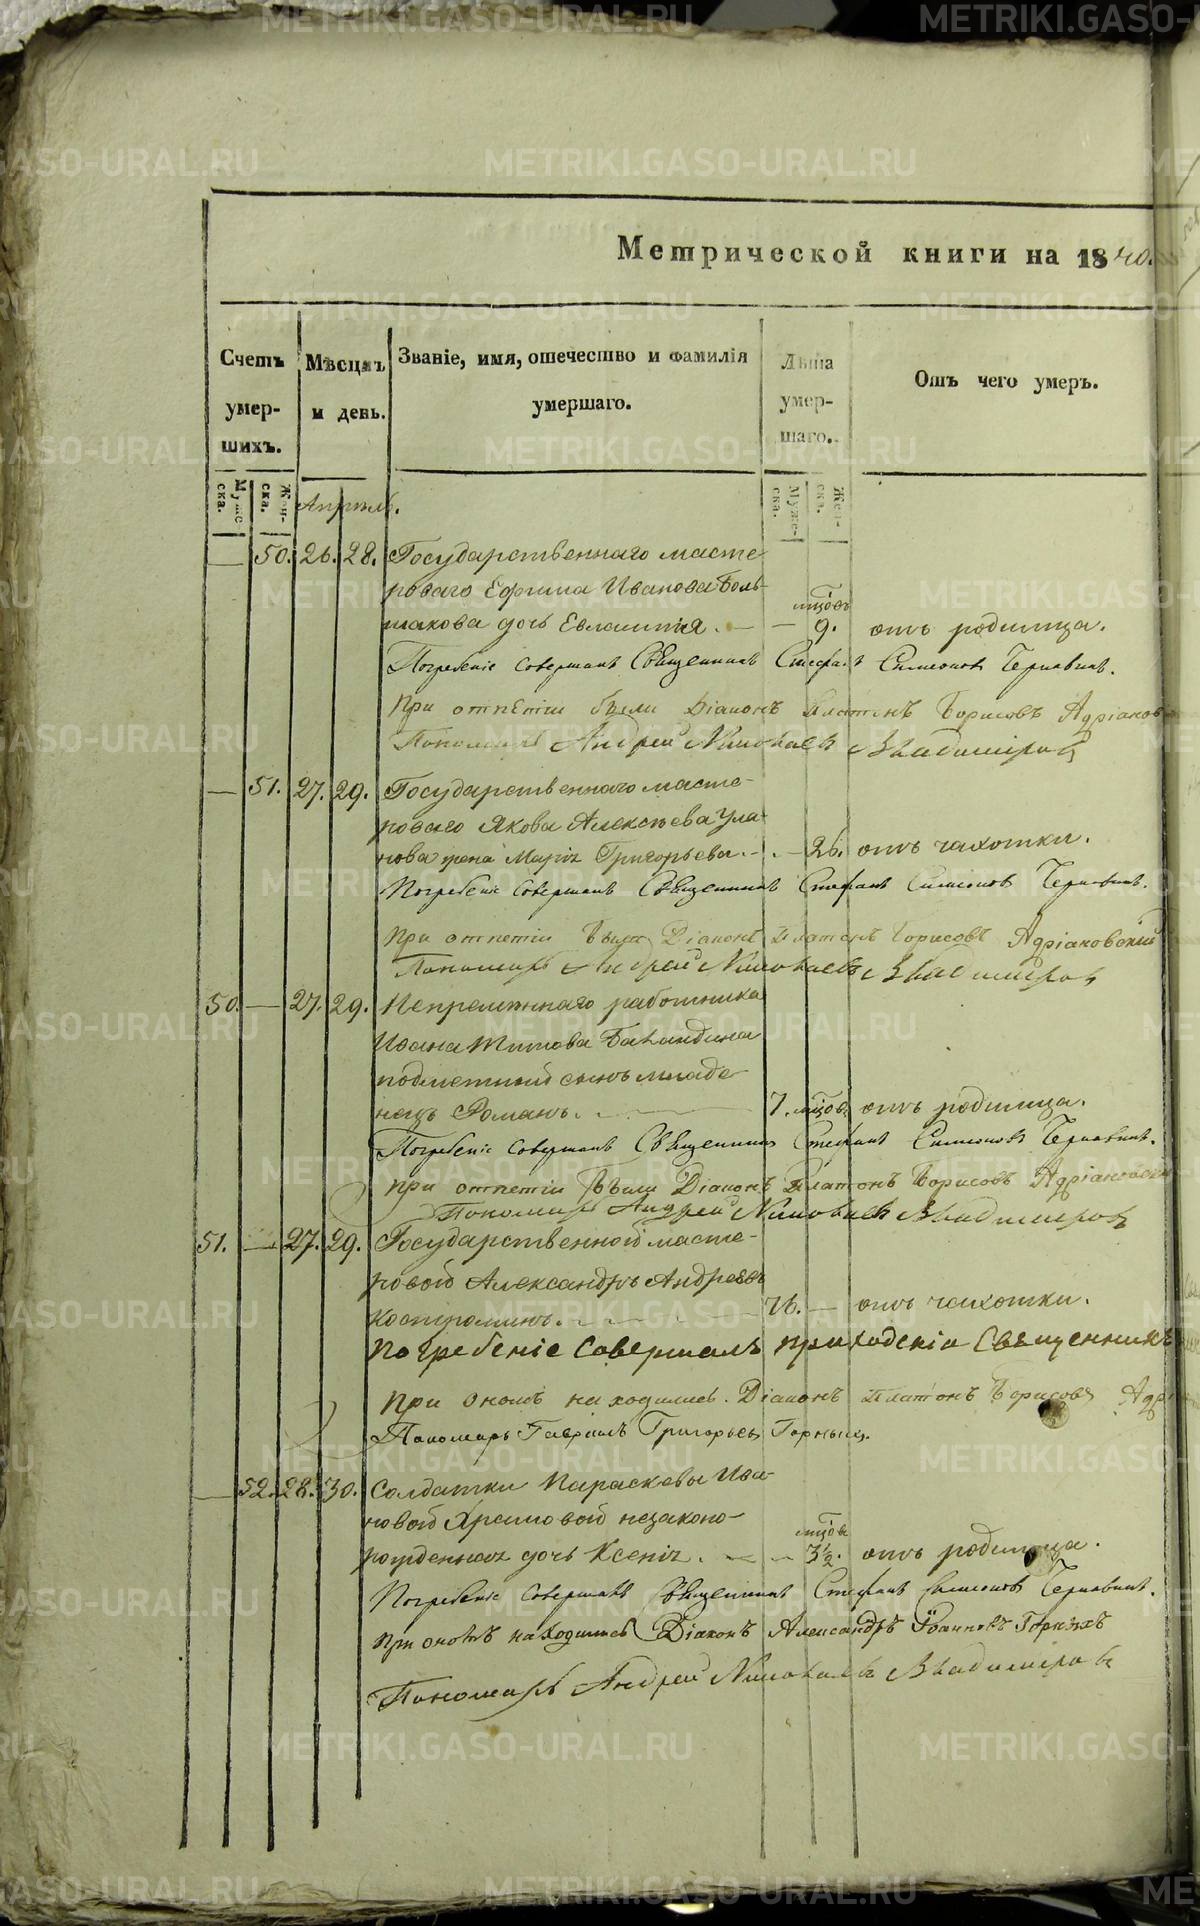 Метрической книги на 1840.
Счетъ умершихъ.
Мѣсяцъ и день.
Званіе, имя, отечество и фамилія умершаго.
Лѣта умершаго.
Отъ чего умеръ.
Мужеска.
Женска.
Мужеска.
Женска.
Апрѣль.
— 50. 26. 28. Государственнаго масте
роваго Ефима Иванова Боль-
шакова дочь Евлампія. — мцовъ 9. отъ родимца.
Погребеніе совершалъ Священникъ Стефанъ Симеоновъ Чернавинъ.
При отпѣтіи были Діаконъ Платонъ Борисовъ Адріанов
Пономарь Андрей Николаевъ Владиміровъ
— 51. 27. 29. Государственнаго масте-
роваго Якова Алексѣева Ула-
нова жена Марія Григорьева. — 26. отъ чахотки.
Погребеніе совершалъ Священникъ Стефанъ Симеоновъ Чернавинъ.
При отпетіи были Діаконъ Платонъ Борисовъ Адріановскій
Пономарь Андрей Николаевъ Владиміровъ
50. — 27. 29. Непремѣннаго работника
Ивана Титова Баландина
подметный сынъ младе-
нецъ Романъ. — 7. мцовъ. отъ родимца.
Погребеніе совершалъ Священникъ Стефанъ Симеоновъ Чернавинъ.
При отпетіи были Діаконъ Платонъ Борисовъ Адріановскій
Пономарь Андрей Николаевъ Владиміровъ
51. — 27. 29. Государственной масте-
ровой Александръ Андреевъ
Костроминъ. — 76. — отъ чахотки.
Погребеніе совершалъ приходскіи Священникъ
При ономъ находились. Діаконъ Платонъ Борисовъ Адрі
Пономарь Гавріилъ Григорьев Горныхъ.
— 52. 28. 30. Солдатки Параскевы Ива-
новой Храмовой незаконо-
рожденная дочь Ксенія. — мцовъ 3½. отъ родимца.
Погребеніе совершалъ Священникъ Стефанъ Симеоновъ Чернавинъ.
При ономъ находились Діаконъ Александръ Іоанновъ Горныхъ
Пономарь Андрей Николаевъ Владиміровъ